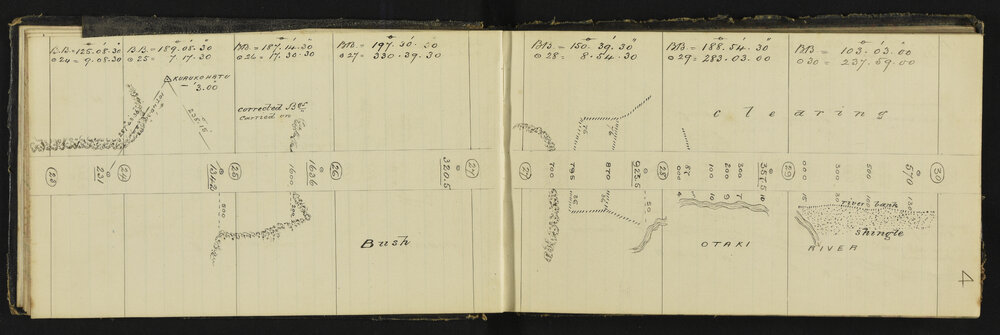 B.B. = 125.08.30
⊙24 = 9.08.30
B.B. = 189.08.30
⊙25 = 7.17.30
BB = 187.14.30
⊙26 = 17.30.30
BB = 197.30.30
⊙27 = 330.39.30
BB = 150.39.30
⊙28 = 8.54.30
BB = 188.54.30
⊙29 = 283.03.00
BB = 103.03.00
⊙30 = 237.59.00
KURUKOHATU
- 3.00
corrected
carried on
clearing
235.15
23
231
24
1342
25
1600
1636
26
320.5
27
700
795
870
925.5
28
100
200
300
357.5
29
300
500
570
30
500
50
76
Bush
OTAKI RIVER
river bank
shingle
4